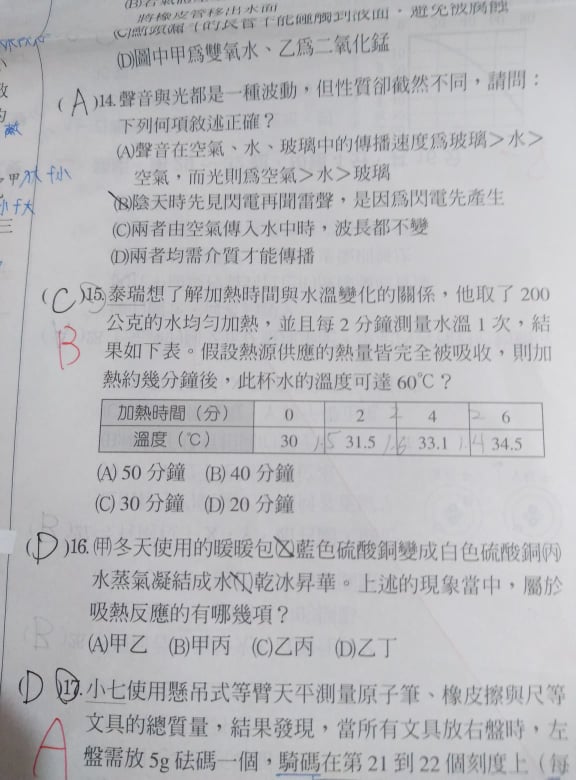 將橡皮管移出水面
(D)圖中甲爲雙氧水、乙爲二氧化錳
(A)14.聲音與光都是一種波動，但性質卻截然不同，請問：
下列何項敘述正確？
(A)聲音在空氣、水、玻璃中的傳播速度爲玻璃＞水＞
空氣，而光則爲空氣＞水＞玻璃
(B)陰天時先見閃電再聞雷聲，是因爲閃電先產生
(C)兩者由空氣傳入水中時，波長都不變
(D)兩者均需介質才能傳播
(C)15.泰瑞想了解加熱時間與水溫變化的關係，他取了 200
B
公克的水均勻加熱，並且每 2 分鐘測量水溫 1 次，結
果如下表。假設熱源供應的熱量皆完全被吸收，則加
熱約幾分鐘後，此杯水的溫度可達 60℃？
加熱時間（分） 0 2 2 4 2 6
溫度（℃） 30 1.5 31.5 1.6 33.1 1.4 34.5
(A) 50 分鐘 (B) 40 分鐘
(C) 30 分鐘 (D) 20 分鐘
(D)16.(甲)冬天使用的暖暖包(乙)藍色硫酸銅變成白色硫酸銅(丙)
水蒸氣凝結成水(丁)乾冰昇華。上述的現象當中，屬於
吸熱反應的有哪幾項？
(A)甲乙 (B)甲丙 (C)乙丙 (D)乙丁
(D)17.小七使用懸吊式等臂天平測量原子筆、橡皮擦與尺等
A
文具的總質量，結果發現，當所有文具放右盤時，左
盤需放 5g 砝碼一個，騎碼在第 21 到 22 個刻度上（每